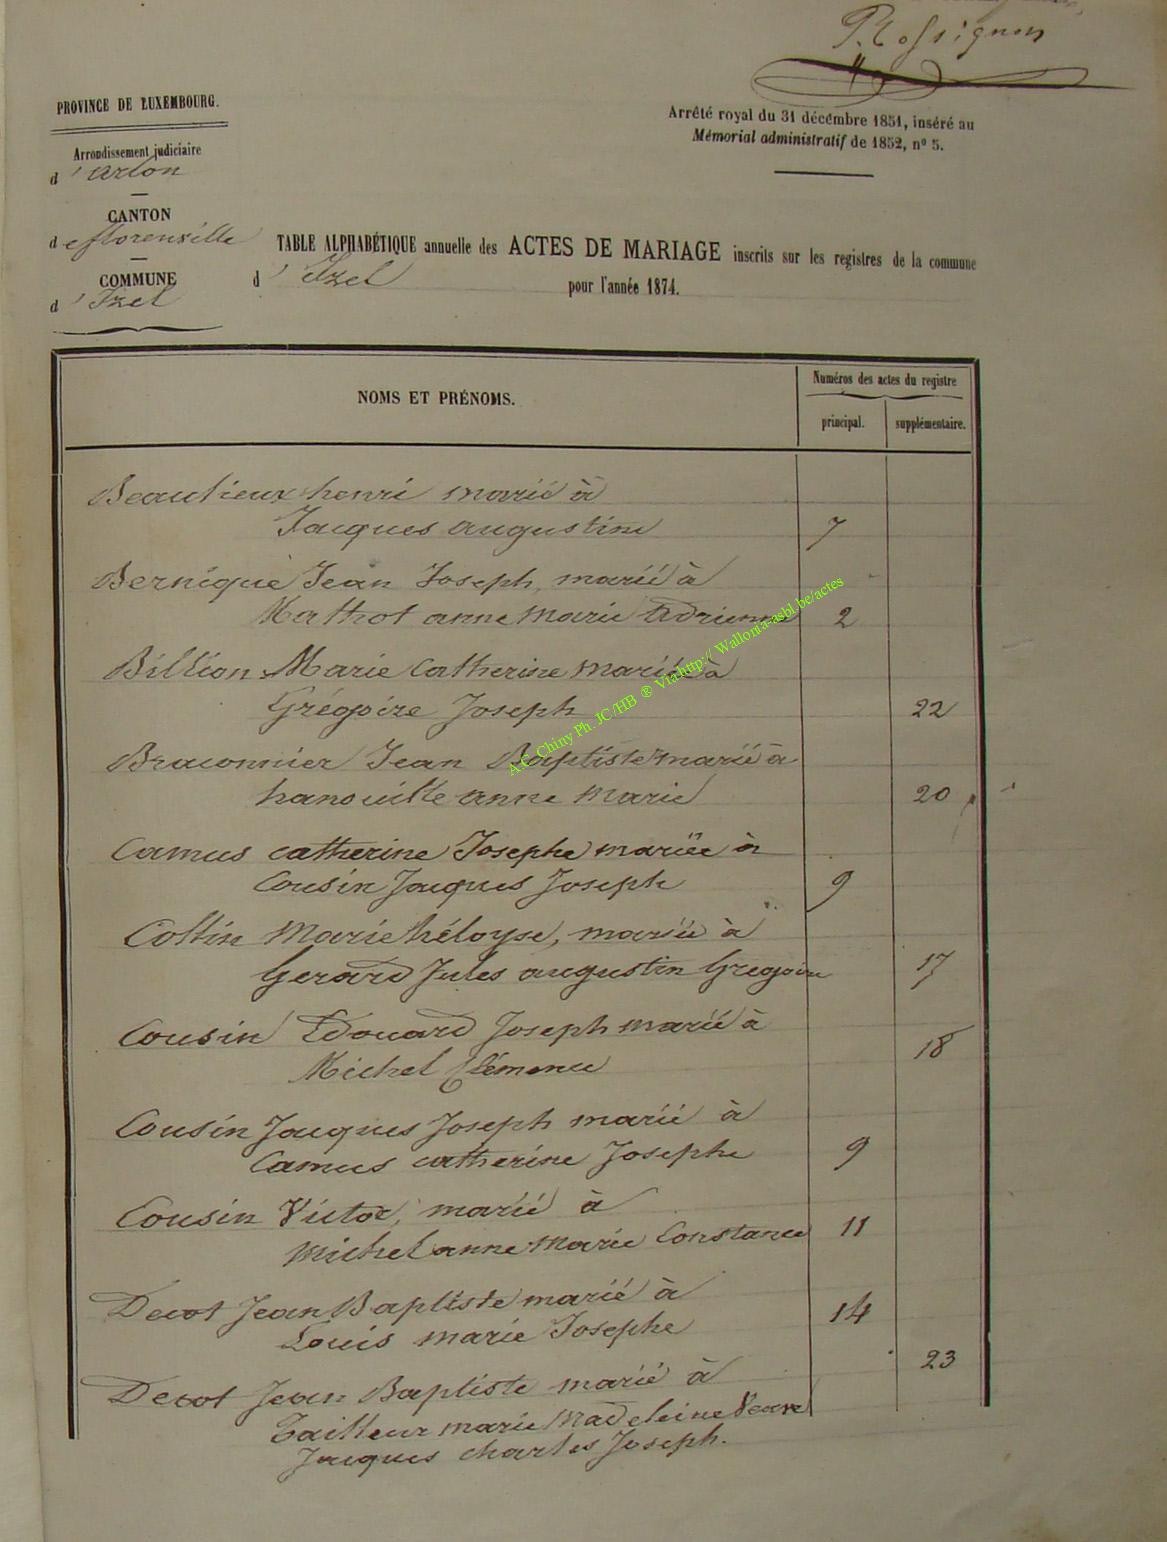 Rossignon
PROVINCE DE LUXEMBOURG.
Arrêté royal du 31 décembre 1851, inséré au
Mémorial administratif de 1852, nº 5.
Arrondissement judiciaire
d'arlon
CANTON
de florenville
COMMUNE
d'Izel
TABLE ALPHABÉTIQUE annuelle des ACTES DE MARIAGE inscrits sur les registres de la commune
d'Izel pour l'année 1874.
NOMS ET PRÉNOMS.
Numéros des actes du registre
principal. supplémentaire.
Beaulieux henri marié à
Jacques augustine 7
Bernique Jean Joseph, marié à
Mathot anne Marie Adrienne 2
Billion Marie Catherine mariée à
Grégoire Joseph 22
Braconnier Jean Baptiste marié à
hanouille anne Marie 20
Camus catherine Josephe mariée à
Cousin Jacques Joseph 9
Collin Marie héloyse, mariée à
Gerard Jules augustin Gregoire 17
Cousin Edouard Joseph marié à
Michel Clémence 18
Cousin Jacques Joseph marié à
Camus catherine Josephe 9
Cousin Victor, marié à
Michel anne Marie Constance 11
Decot Jean Baptiste marié à
Louis marie Josephe 14
Decot Jean Baptiste marié à 23
Tailleur marie Madeleine Veuve
Jacques charles Joseph.
A.C. Chiny Ph. JC/HB ® Via http://Wallonia-asbl.be/actes